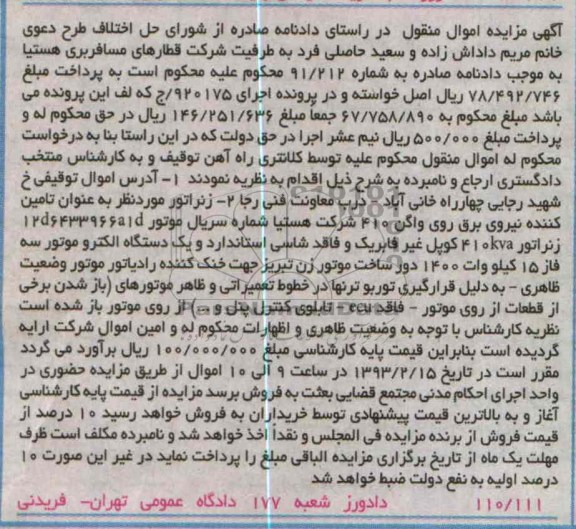 آگهی مزایده اموال منقول در راستای دادنامه صادره از شورای حل اختلاف طرح دعوی
خانم مریم داداش زاده و سعید حاصلی فرد به طرفیت شرکت قطارهای مسافربری هستیا
به موجب دادنامه صادره به شماره ۹۱/۲۱۲ محکوم علیه محکوم است به پرداخت مبلغ
۷۸/۴۹۲/۷۴۶ ریال اصل خواسته و در پرونده اجرای ۹۲۰۱۷۵/ج که لف این پرونده می
باشد مبلغ محکوم به ۶۷/۷۵۸/۸۹۰ جمعا مبلغ ۱۴۶/۲۵۱/۶۳۶ ریال در حق محکوم له و
پرداخت مبلغ ۵۰۰/۰۰۰ ریال نیم عشر اجرا در حق دولت که در این راستا بنا به درخواست
محکوم له اموال منقول محکوم علیه توسط کلانتری راه آهن توقیف و به کارشناس منتخب
دادگستری ارجاع و نامبرده به شرح ذیل اقدام به نظریه نمودند ۱- آدرس اموال توقیفی خ
شهید رجایی چهارراه خانی آباد - درب معاونت فنی رجا ۲- ژنراتور موردنظر به عنوان تامین
کننده نیروی برق روی واگن ۴۱۰ شرکت هستیا شماره سریال موتور 12d6433966a1d
ژنراتور 410kva کوپل غیر فابریک و فاقد شاسی استاندارد و یک دستگاه الکترو موتور سه
فاز ۱۵ کیلو وات ۱۴۰۰ دور ساخت موتور ژن تبریز جهت خنک کننده رادیاتور موتور وضعیت
ظاهری - به دلیل قرارگیری توربو ترنها در خطوط تعمیراتی و ظاهر موتورهای (باز شدن برخی
از قطعات از روی موتور - فاقد ecu - تابلوی کنترل پنل و ...) از روی موتور باز شده است
نظریه کارشناس با توجه به وضعیت ظاهری و اظهارات محکوم له و امین اموال شرکت ارایه
گردیده است بنابراین قیمت پایه کارشناسی مبلغ ۱۰۰/۰۰۰/۰۰۰ ریال برآورد می گردد
مقرر است در تاریخ ۱۳۹۳/۲/۱۵ در ساعت ۹ الی ۱۰ اموال از طریق مزایده حضوری در
واحد اجرای احکام مدنی مجتمع قضایی بعثت به فروش برسد مزایده از قیمت پایه کارشناسی
آغاز و به بالاترین قیمت پیشنهادی توسط خریداران به فروش خواهد رسید ۱۰ درصد از
قیمت فروش از برنده مزایده فی المجلس و نقدا اخذ خواهد شد و نامبرده مکلف است ظرف
مهلت یک ماه از تاریخ برگزاری مزایده الباقی مبلغ را پرداخت نماید در غیر این صورت ۱۰
درصد اولیه به نفع دولت ضبط خواهد شد
۱۱۰/۱۱۱ دادورز شعبه ۱۷۷ دادگاه عمومی تهران- فریدنی